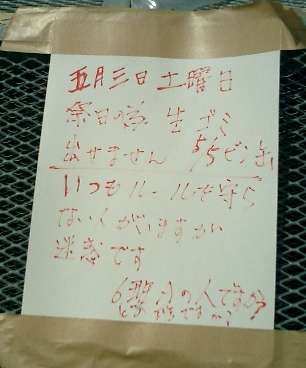 五月三日土曜日
祭日 生ゴミ
出せません 5/5ビン缶
いつもルールを守ら
ないくがいますが
迷惑です
の人ですか?